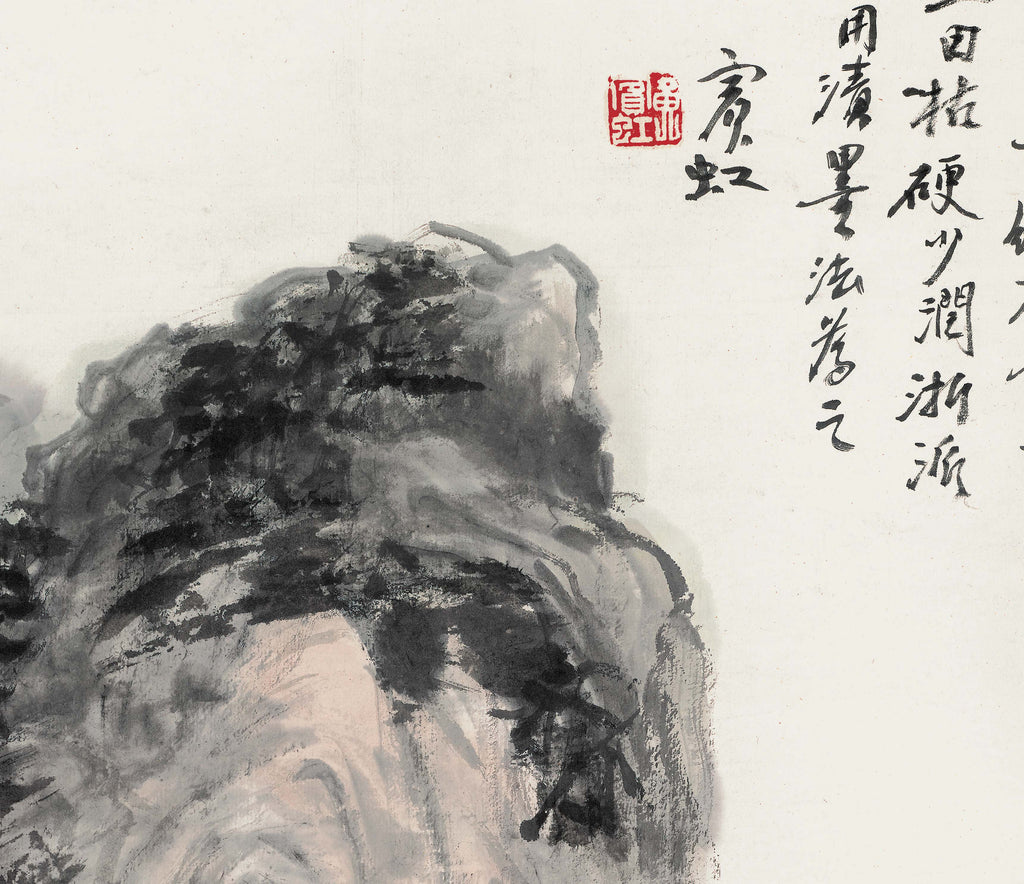 田枯硬少潤浙派
用漬墨法為之
賓虹
黃山
賓虹